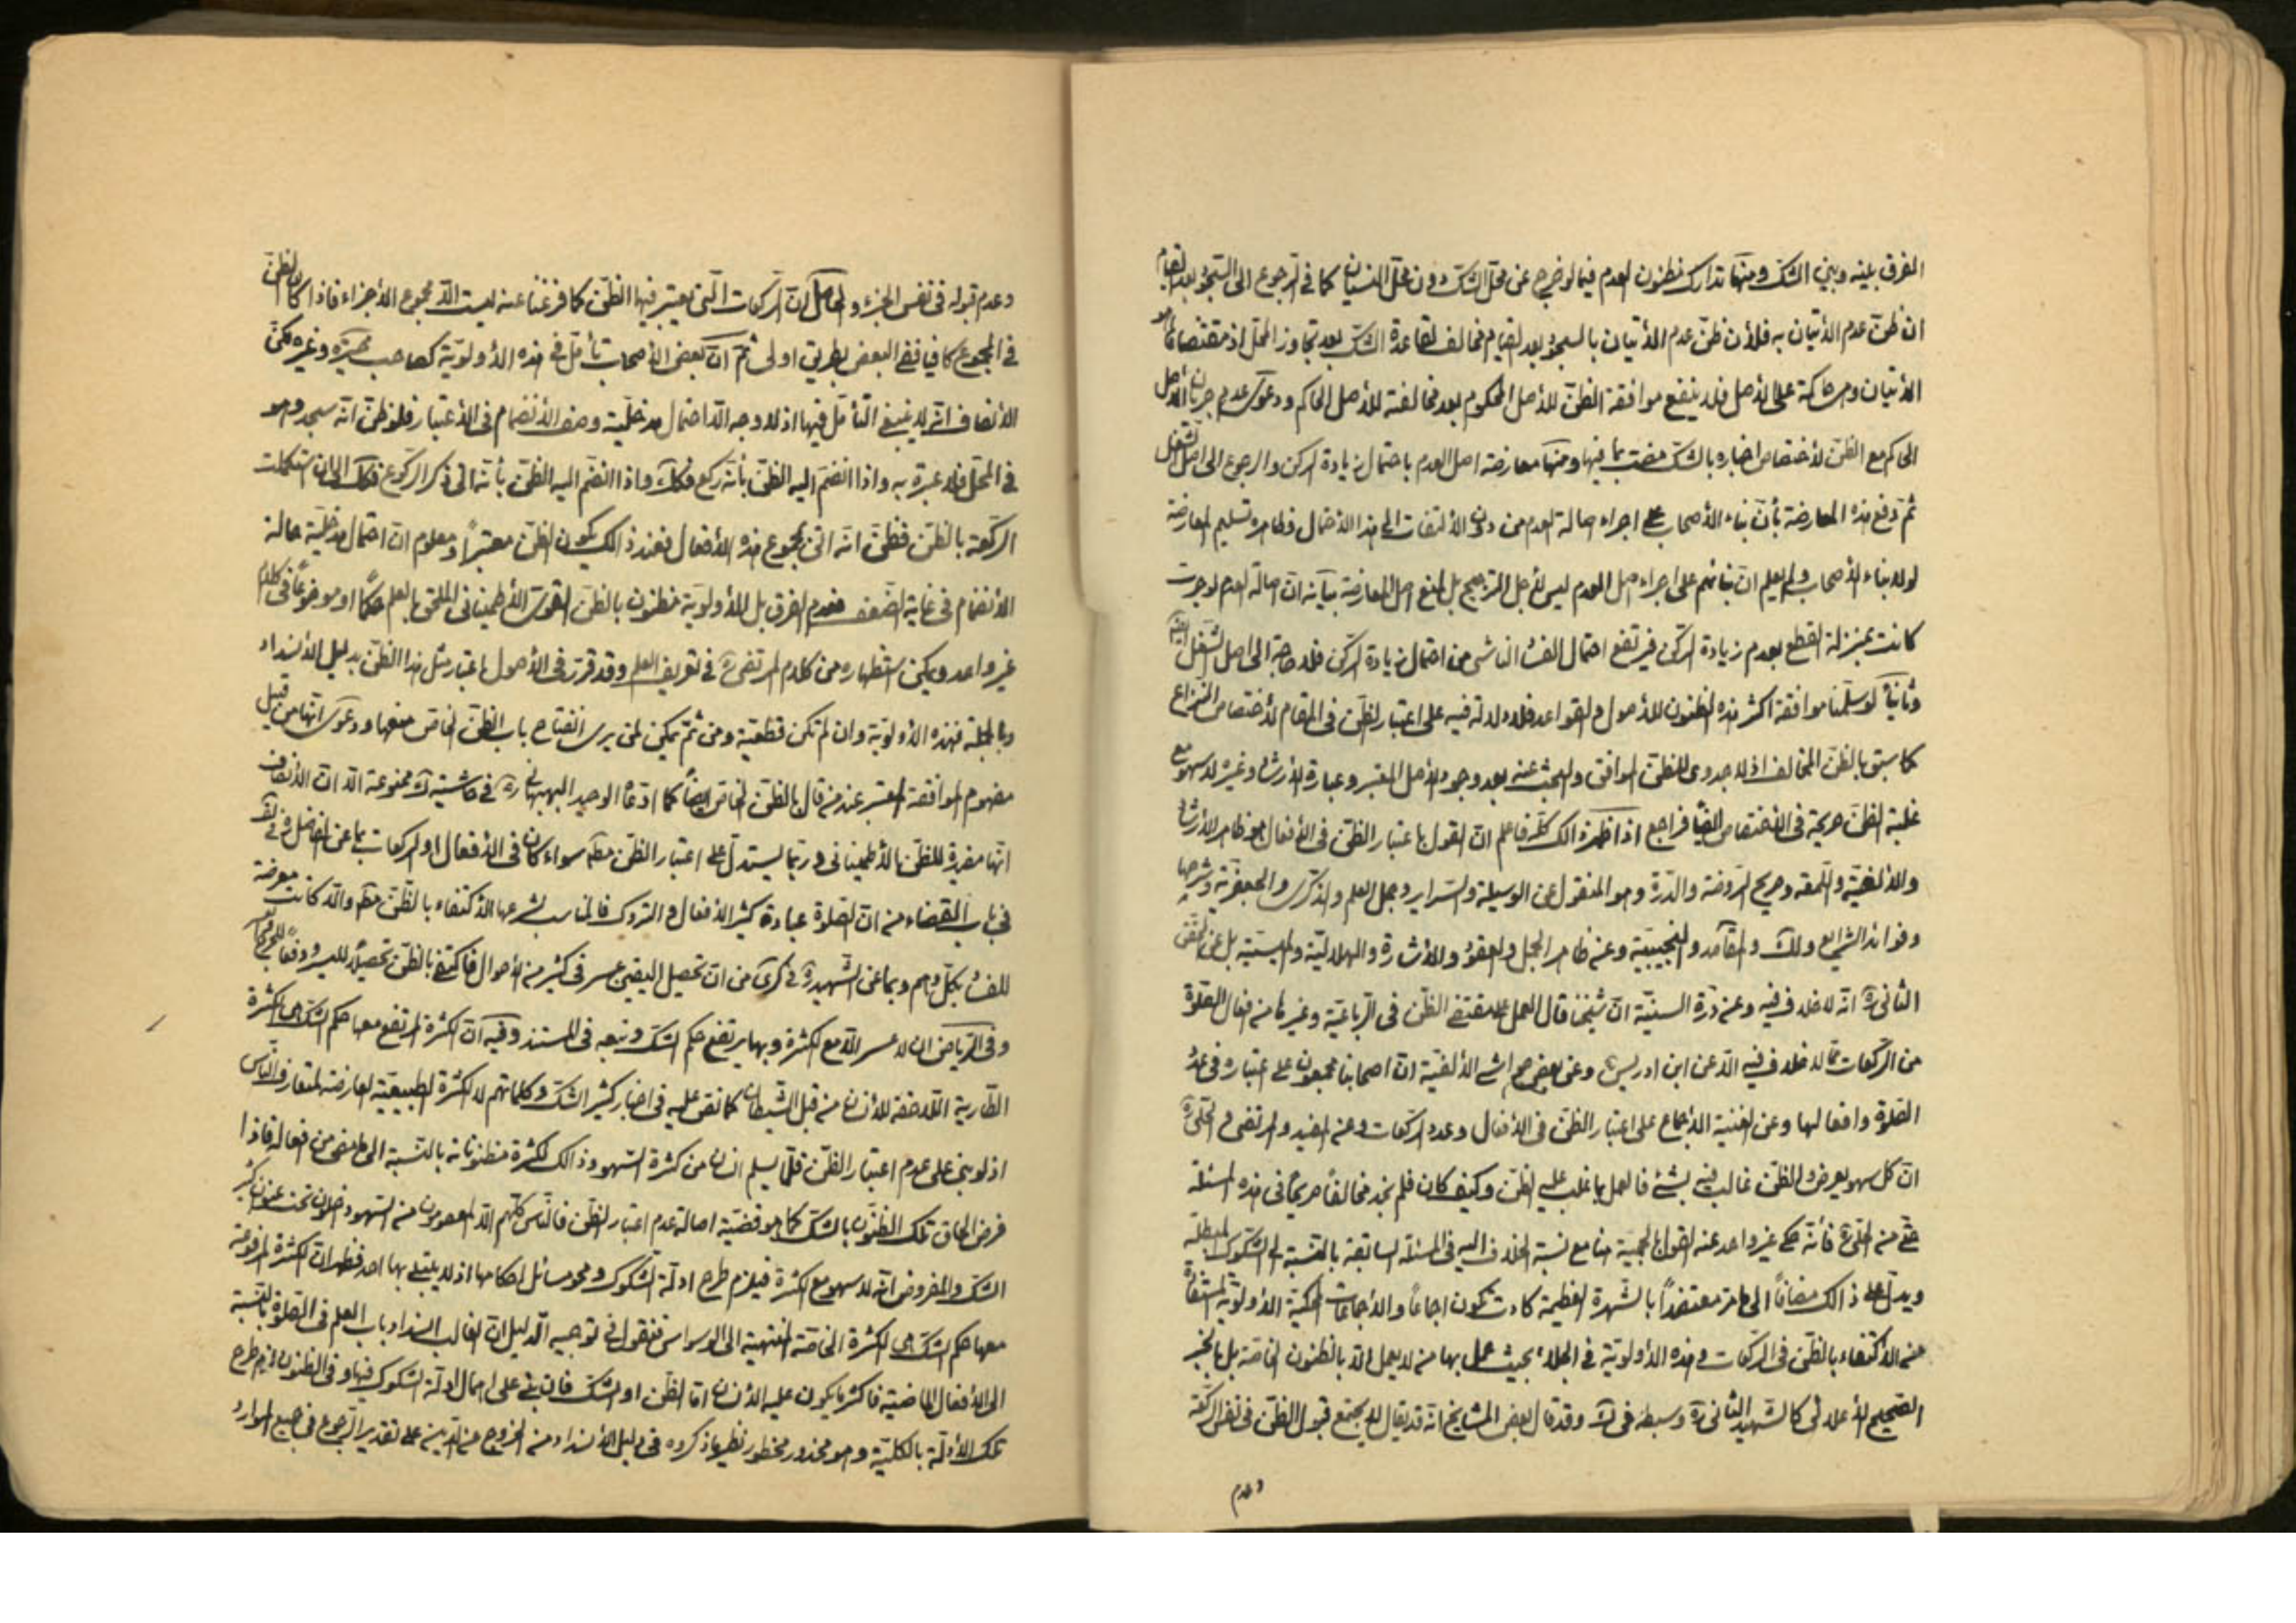 الفرق بينه وبين الشك ومنها تدارك مظنون العدم فيما لو خرج عن محل الشك دون محل النسيان كما في الرجوع الى السجود بعد القيام
ان ظن عدم الاتيان به فلأن ظن عدم الأتيان بالسجود بعد القيام مخالف لقاعدة الشك بعد تجاوز المحل اذ مقتضاها هو
الأتيان وحاكمة على الأصل فلا ينفع موافقة الظن للأصل المحكوم بعد مخالفة للأصل الحاكم ودعوى عدم جريان الأصل
الحاكم مع الظن لأختصاص اخباره بالشك بما فيها ومنها معارضة اصل العدم باحتمال زيادة الركن والرجوع الى اصل الشغل
ثم دفع هذه المعارضة بأن بناء الأصحاب على اجراء اصالة العدم من دون الألتفات الى هذا الأحتمال وظاهره تسليم المعارضة
لولا بناء الأصحاب ولم يعلم ان بنائهم على اجراء اصل العدم ليس لأجل الترجيح بل لمنع اصل المعارضة بيانه ان اصالة العدم لو جرت
كانت بمنزلة القطع بعدم زيادة الركن فيرتفع احتمال الفساد الناشي من احتمال زيادة الركن فلا حاجة الى اصل الشغل
وثانيا لو سلمنا موافقة اكثر هذه الظنون للأصول والقواعد فلا دلالة فيه على اعتبار الظن في المقام لأختصاص النزاع
كما سبق بالظن المخالف اذ لا جدوى للظن الموافق والبحث عنه بعد وجود الأصل المعتبر وعبارة الأرشاد وغيره لا سهو مع
غلبة الظن صريحة في الأختصاص ايضا فراجع اذا ظهر ذالك كله فاعلم ان القول باعتبار الظن في الأفعال هو ظاهر الأرشاد
والألفية واللمعة وصريح الروضة والدرة وهو المنقول عن الوسيلة والسراير وجمل العلم والذكرى والجعفرية وشرحها
وفوائد الشرايع ولك والمقاصد والنجيبية وعنه ظاهر الجمل والعقود والأشارة والهلالية والميسية بل عن المحقق
الثاني ره انه لا خلاف فيه وعنه درة السنية ان شيخنا قال العمل على مقتضى الظن في الرباعية وغيرها من افعال الصلوة
من الركعات مما لا خلاف فيه الا عن ابن ادريس وعن بعض حواشي الألفية ان اصحابنا مجمعون على اعتباره في عدد
الصلوة وافعالها وعن الغنية الأجماع على اعتبار الظن في الأفعال وعدد الركعات وعنه المفيد والمرتضى والحلي ره
ان كل سهو يعرض والظن غالب فيه بشئ فالعمل بما غلب عليه الظن وكيف كان فلم نجد مخالفا صريحا في هذه المسئلة
حتى من الحلي ره فأنه حكى غير واحد عنه القول بالحجية هنا مع نسبة الخلاف اليه في المسئلة السابقة بالنسبة الى الشكوك المبطلة
ويدل على ذالك مضافا الى ما مر معتضدا بالشهرة العظيمة كادت تكون اجماعا والأجماعات المحكية الأولوية المستفادة
عنه الأكتفاء بالظن في الركعات وهذه الأولوية في الجلاء بحيث عمل بها من لا يعمل الا بالظنون الخاصة بل بالخبر
الصحيح الأعلائي كالشهيد الثاني ره وسبطه في ك وقد قال بعض المشايخ انه قد يقال لا يجتمع قبول الظن في نفس الركعة
وعدم
وعدم قبوله في نفس الجزء والحاصل ان الركعات التي يعتبر فيها الظن كما فرغنا عنه ليست الا مجموع الأجزاء فاذا كان الظن
في المجموع كافيا ففي البعض بطريق اولى ثم ان بعض الأصحاب تأمل في هذه الأولوية كصاحب وغيره لكن
الأنصاف انه لا ينبغي التأمل فيها اذ لا وجه الا احتمال مدخلية وصف الأنضمام في الأعتبار فلو ظن انه سجد وهو
في المحل فلا عبرة به واذا انضم اليه الظن بأنه ركع فكك واذا انضم اليه الظن بأنه اتى ذكر الركوع فكك الى ان استكملت
الركعة بالظن فظن انه اتى بمجموع هذه الأفعال فعند ذالك يكون الظن معتبرا ومعلوم ان احتمال مدخلية حالة
الأنضمام في غاية الضعف فعدم الفرق بل الأولوية مظنون بالظن القوى الأطميناني الملحق بالعلم حكما او موضوعا في كلام
غير واحد ويمكن استظهاره من كلام المرتضى ره في تعريف العلم وقد قررت في الأصول اعتبار مثل هذا الظن بدليل الأنسداد
وبالجملة فهذه الأولوية وان لم تكن قطعية ومن ثم يمكن لمن يرى انفتاح باب الظن الخاص منعها ودعوى انها من قبيل
مفهوم الموافقة المعتبر عند من قال بالظن الخاص ايضا كما ادعاها الوحيد البهبهاني ره في حاشية ك ممنوعة الا ان الأنصاف
انها مفيدة للظن الأطميناني وربما يستدل على اعتبار الظن مطلقا سواء كان في الأفعال او الركعات بما عن الفاضل ره في
في باب القضاء من ان الصلوة عبادة كثير الأفعال والتروك فالمناسب لشرعها الأكتفاء بالظن مط والا كانت معرضة
للفساد بكل وهم وبما عن الشهيد ره في كرى من ان تحصيل اليقين عسر في كثير من الأحوال فاكتفى بالظن تحصيلا لليسر ودفعا للحرج
وفي الرياض ان لا عسر الا مع الكثرة وبها يرتفع حكم الشك وتبعه في المستند وفيه ان الكثرة المرتفع معها حكم الشك هي الكثرة
الطارية اللاحقة للأنسان من قبل الشيطان كما نص عليه في اخبار كثير الشك وكلماتهم لا الكثرة الطبيعية العارضة لمتعارف الناس
اذ لو بنى على عدم اعتبار الظن قلما يسلم انسان من كثرة السهو وذالك لكثرة مظنوناته بالنسبة الى ما مضى من افعاله فاذا
فرض الحاق تلك الظنون بالشك كما هو قضية اصالة عدم اعتبار الظن فالناس كلهم الا المعصومون عنه السهو داخلون تحت عنوان كثير
الشك والمفروض انه لا سهو مع الكثرة فيلزم طرح ادلة الشكوك ومحو مسائل احكامها اذ لا يبتلى بها احد فظهر ان الكثرة المرفوعة
معها حكم الشك هي الكثرة الخاصة المنتهية الى الوسواس فنقول في توجيه الدليل ان الغالب انسداد باب العلم في الصلوة بالنسبة
الى الأفعال الماضية فاكثر ما يكون عليه الأنسان اما الظن او الشك فان بنى على اعمال ادلة الشكوك فيها وفي الظنون لزم طرح
تلك الأدلة بالكلية وهو محذور محظور نظير ما ذكروه في دليل الأنسداد من الخروج عن الدين على تقدير الرجوع في جميع الموارد